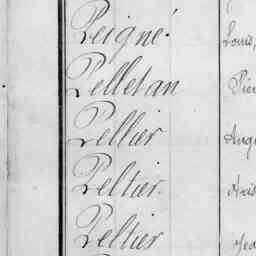 Peigné Louis,
Pelletan Pier
Pellier Augu
Peltier Aris
Peltier Jea